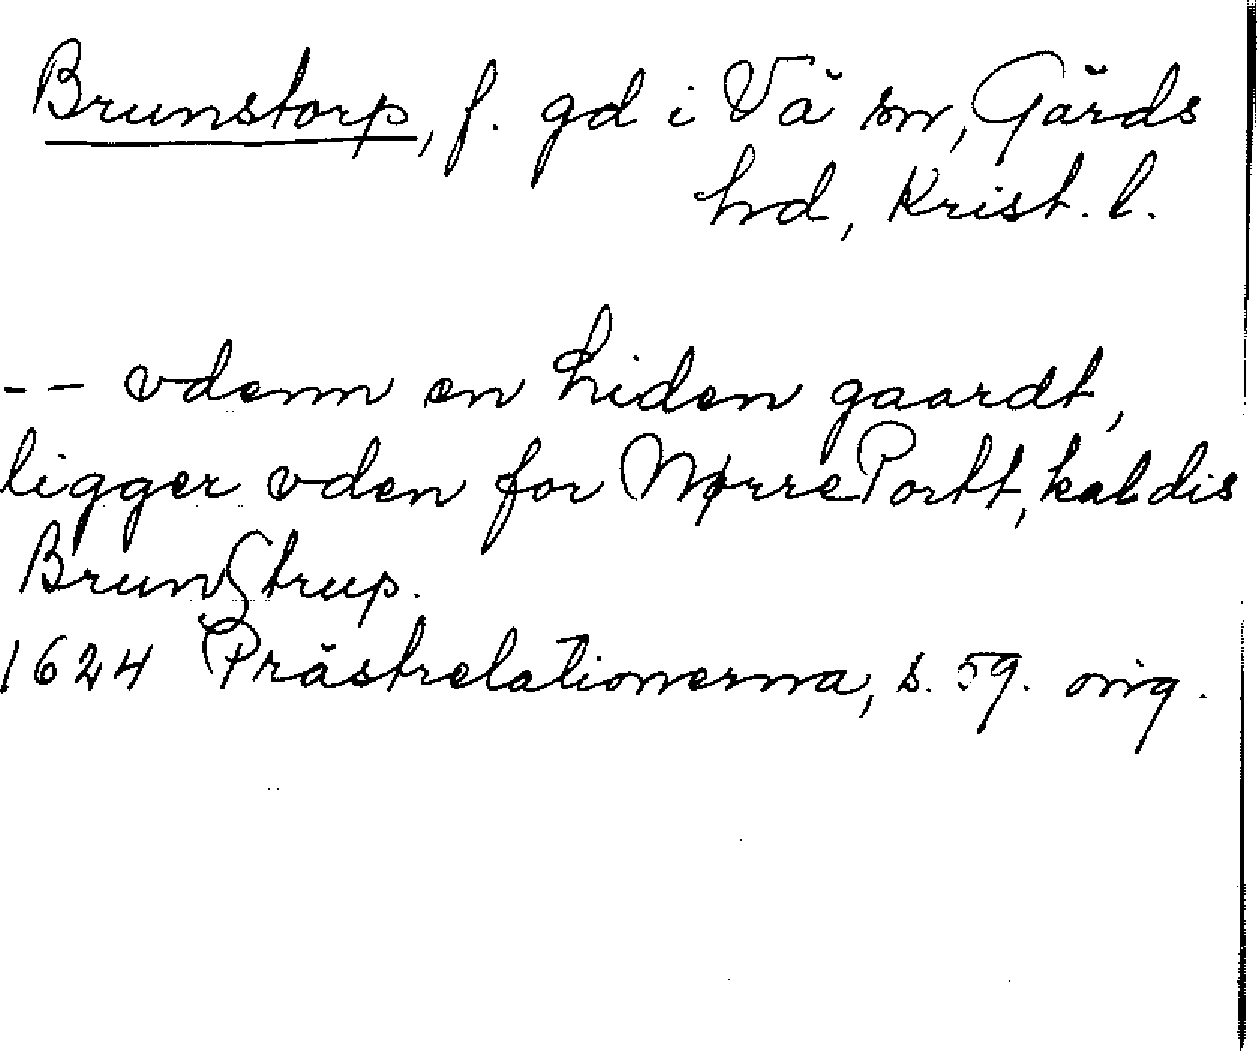 Brunstorp, f. gd i Vä sn, Gärds
hd, Krist. l.
-- vdenn en Liden gaardt,
ligger vden for Nørre Portt, kaldis
Brunstrup.
1624 Prästrelationerna, s. 59. orig.